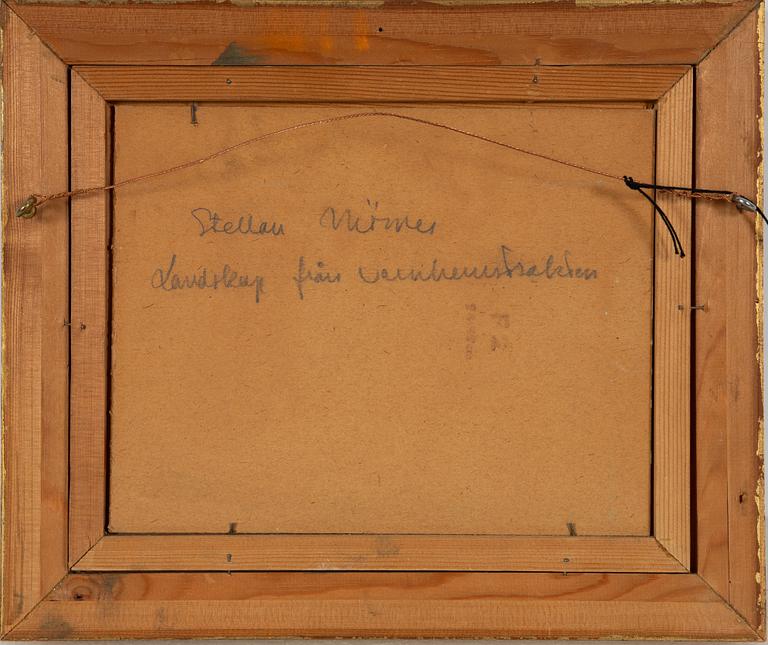 Stellan Mörner
Landskap från Varnhemstrakten